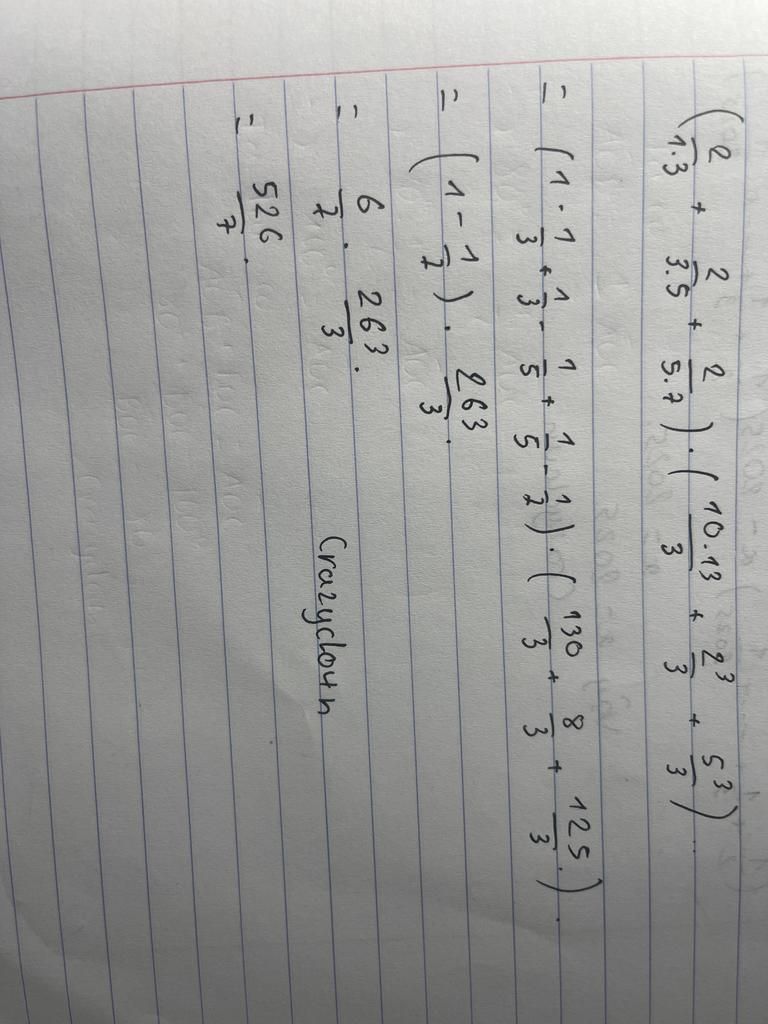 (2/1.3 + 2/3.5 + 2/5.7) . (10.13/3 + 2³/3 + 5³/3) .
= (1 - 1/3 + 1/3 - 1/5 + 1/5 - 1/7) . (130/3 + 8/3 + 125/3) .
= (1 - 1/7) . 263/3 .
= 6/7 . 263/3 .
= 526/7 .
Crazyclown